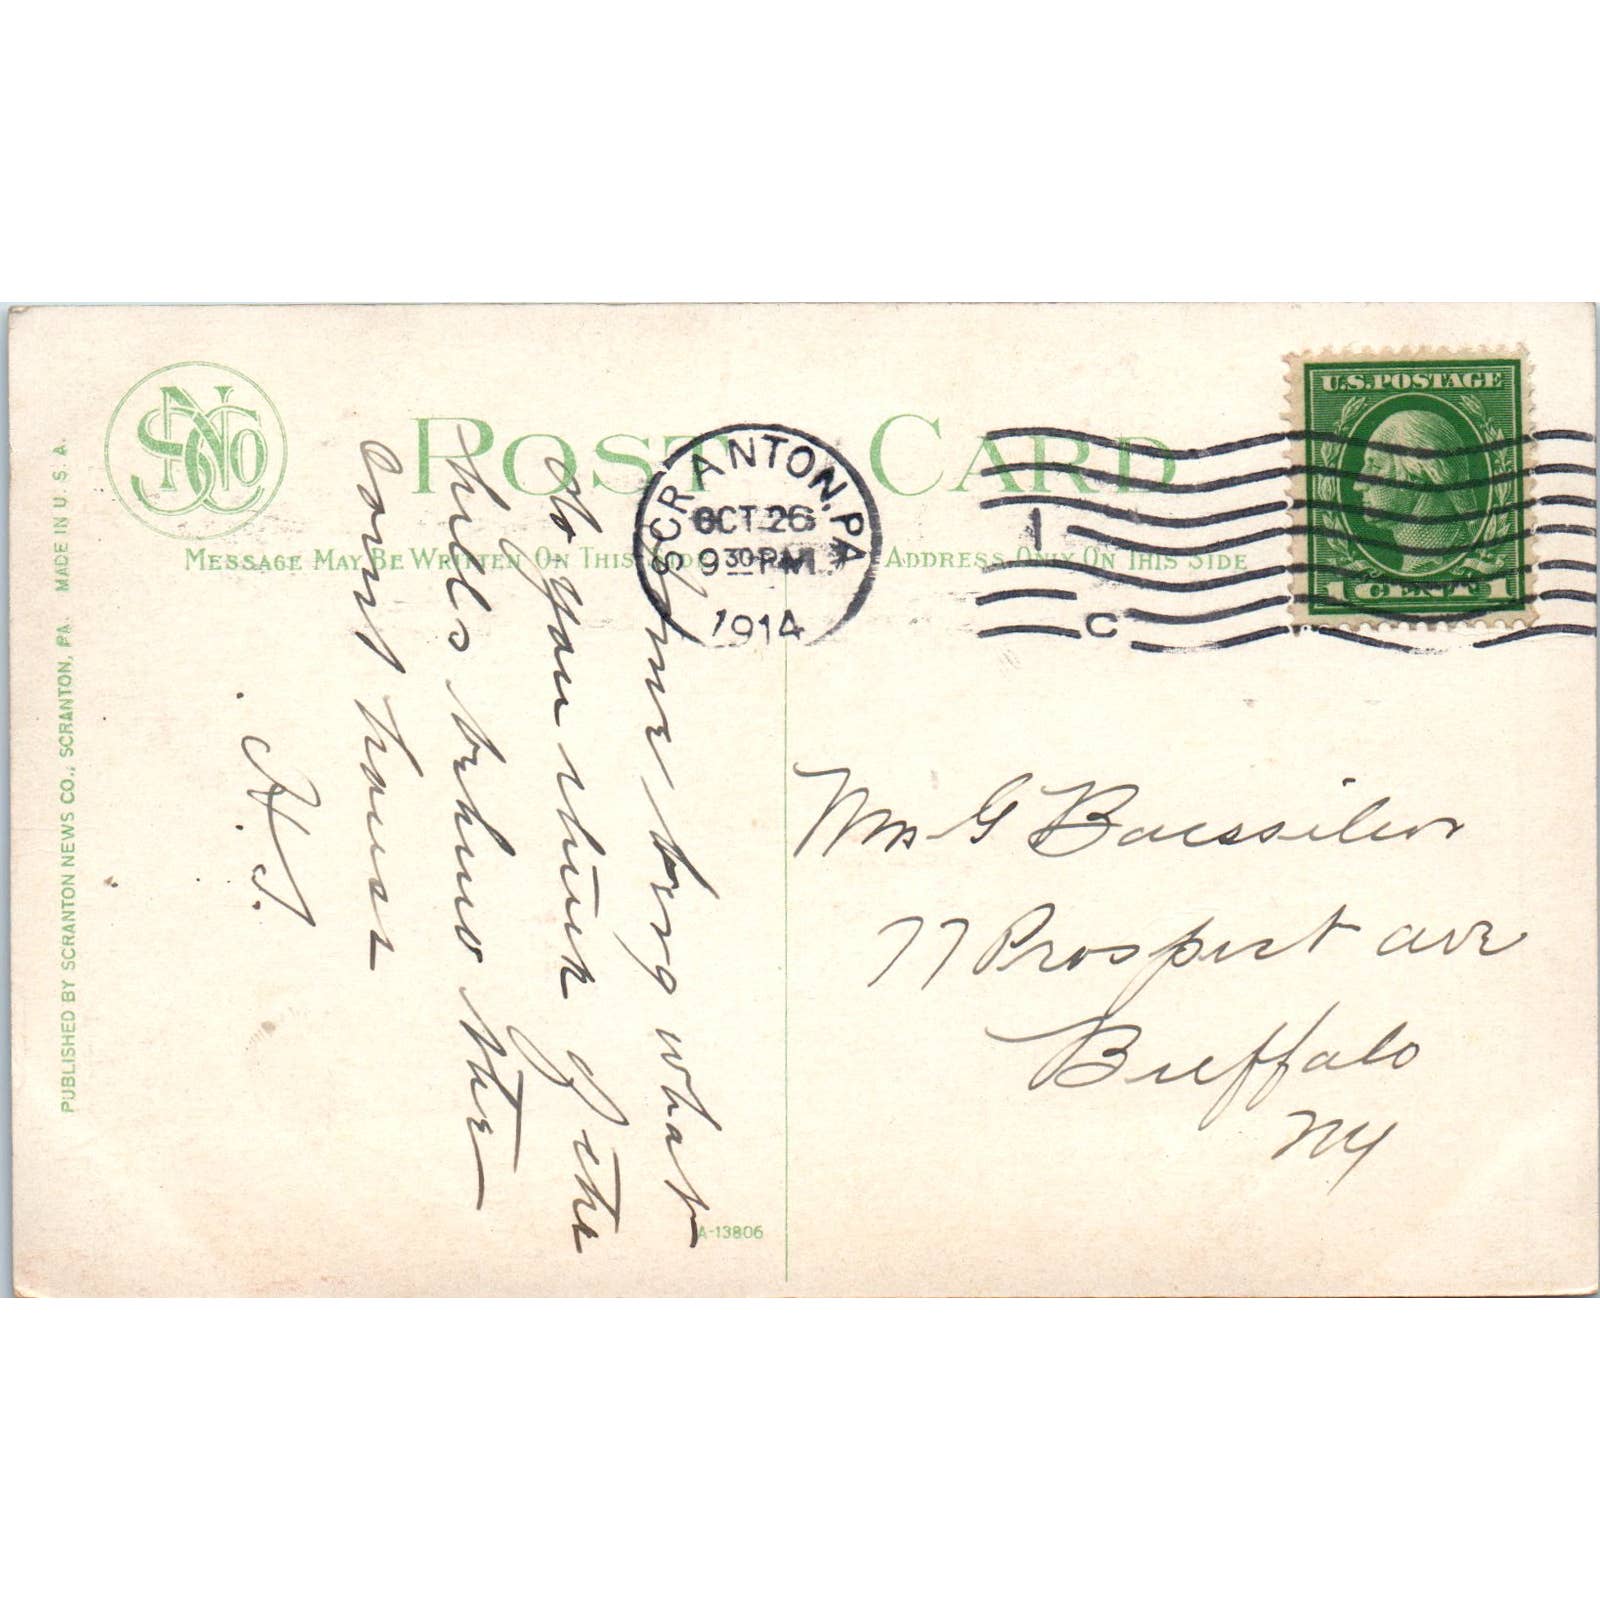 POST CARD
MESSAGE MAY BE WRITTEN ON THIS SIDE
ADDRESS ONLY ON THIS SIDE
SCRANTON, PA
OCT 26
9 30 PM
1914
1
C
U.S. POSTAGE
1 CENT 1
being what
do you think of the
hills behind the
court house
H. J.
Mrs G
77 Prospect ave
Buffalo
NY
PUBLISHED BY SCRANTON NEWS CO., SCRANTON, PA. MADE IN U. S. A.
A-13806